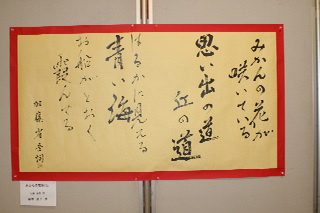 みかんの花が
咲いている
思い出の道
丘の道
はるかに見える
青い海
お船がとおく
霞んでる
加藤省吾詞